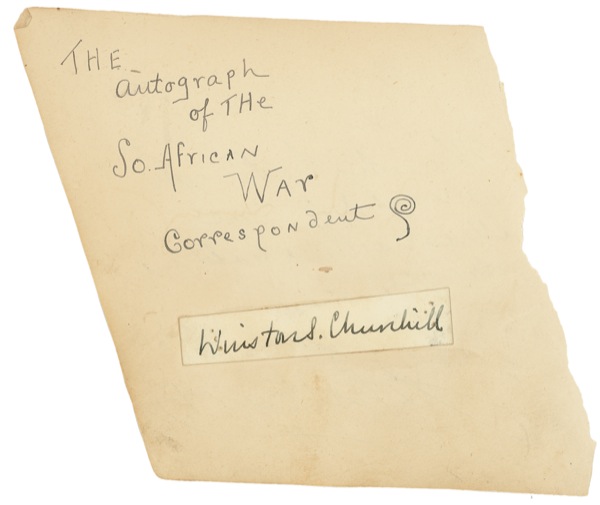 THE
autograph
of THe
So. AfricAN
WAr
CorrespoNdent
Winston S. Churchill